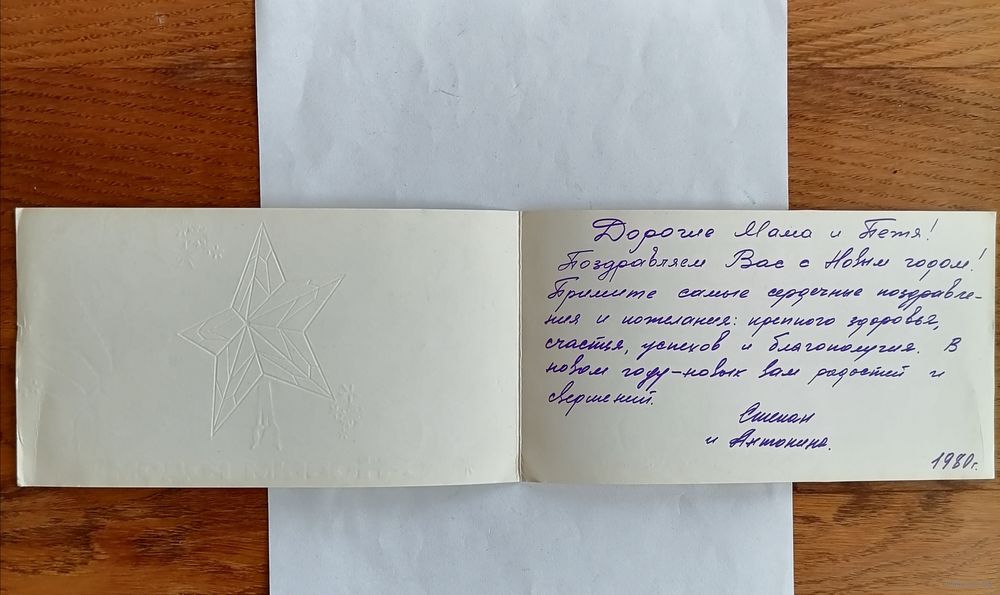 Дорогие Мама и Петя!
Поздравляем Вас с Новым годом!
Примите самые сердечные поздравле-
ния и пожелания: крепкого здоровья,
счастья, успехов и благополучия. В
новом году-новых вам радостей и
свершений.
Степан
и Антонина.
1980г.